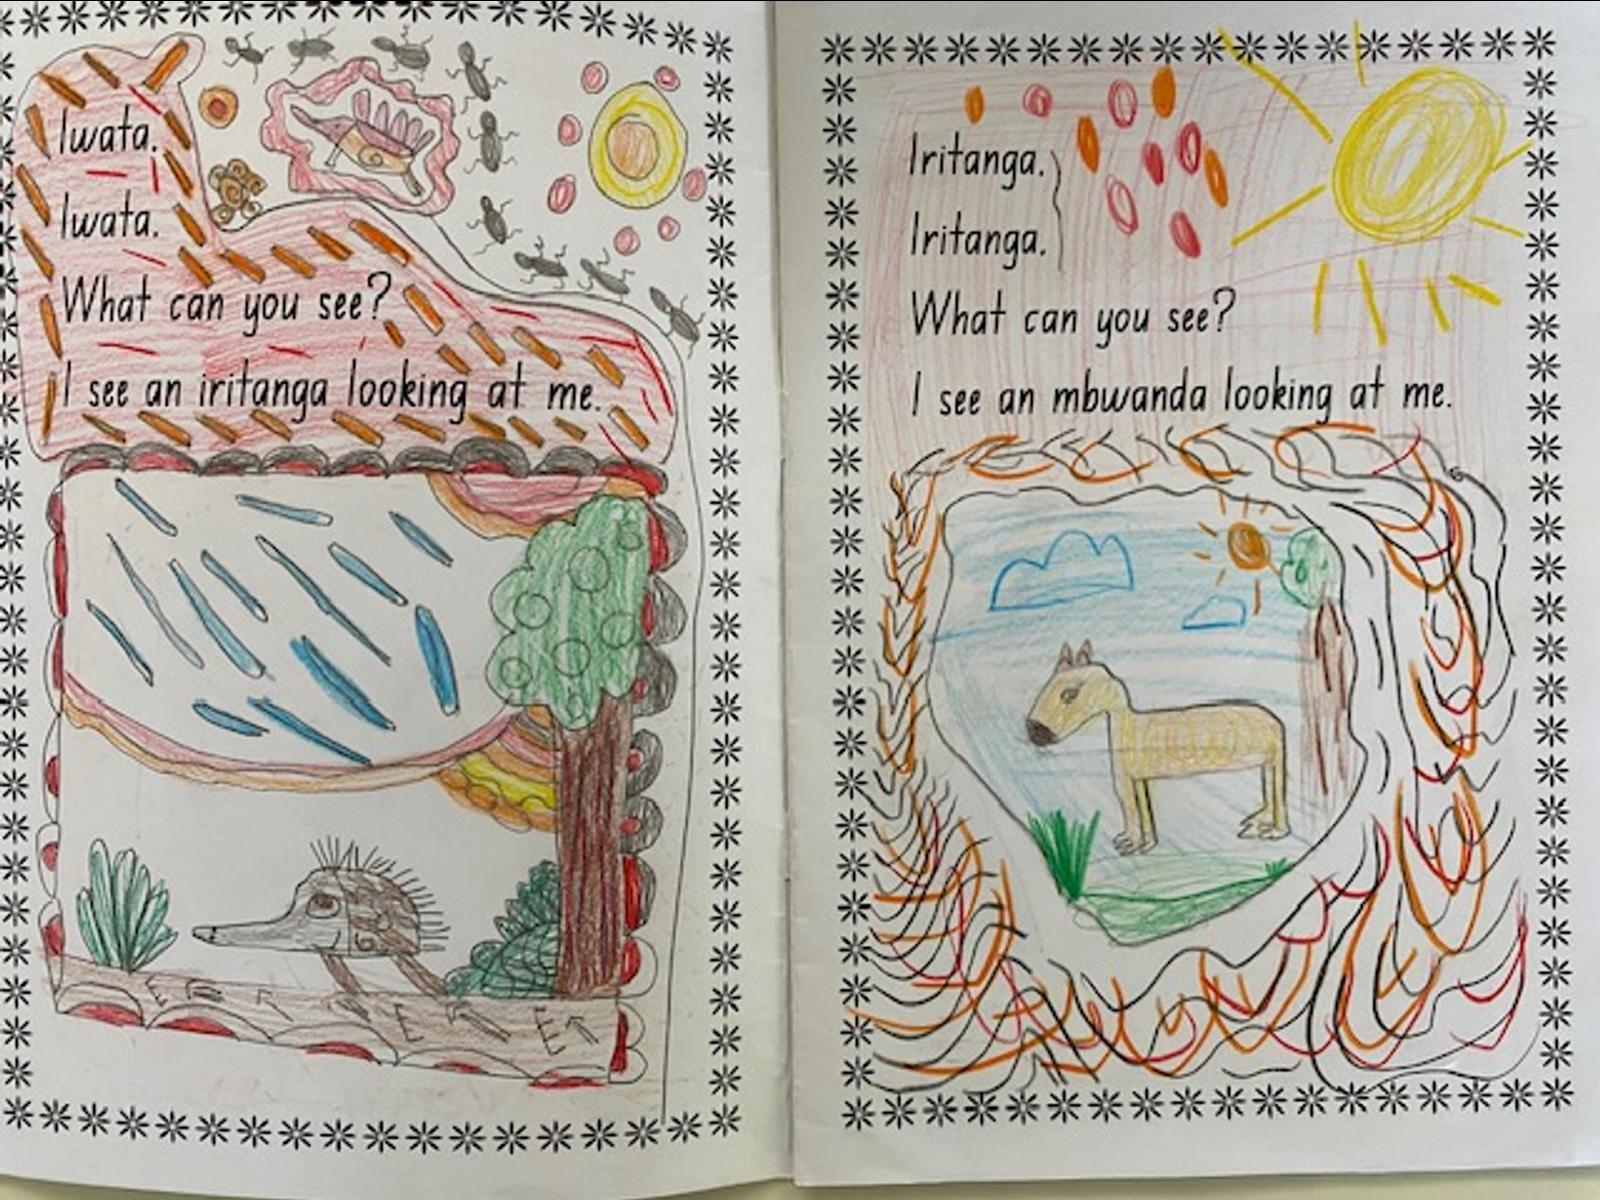 Iwata.
Iwata.
What can you see?
I see an iritanga looking at me.
Iritanga.
Iritanga.
What can you see?
I see an mbwanda looking at me.